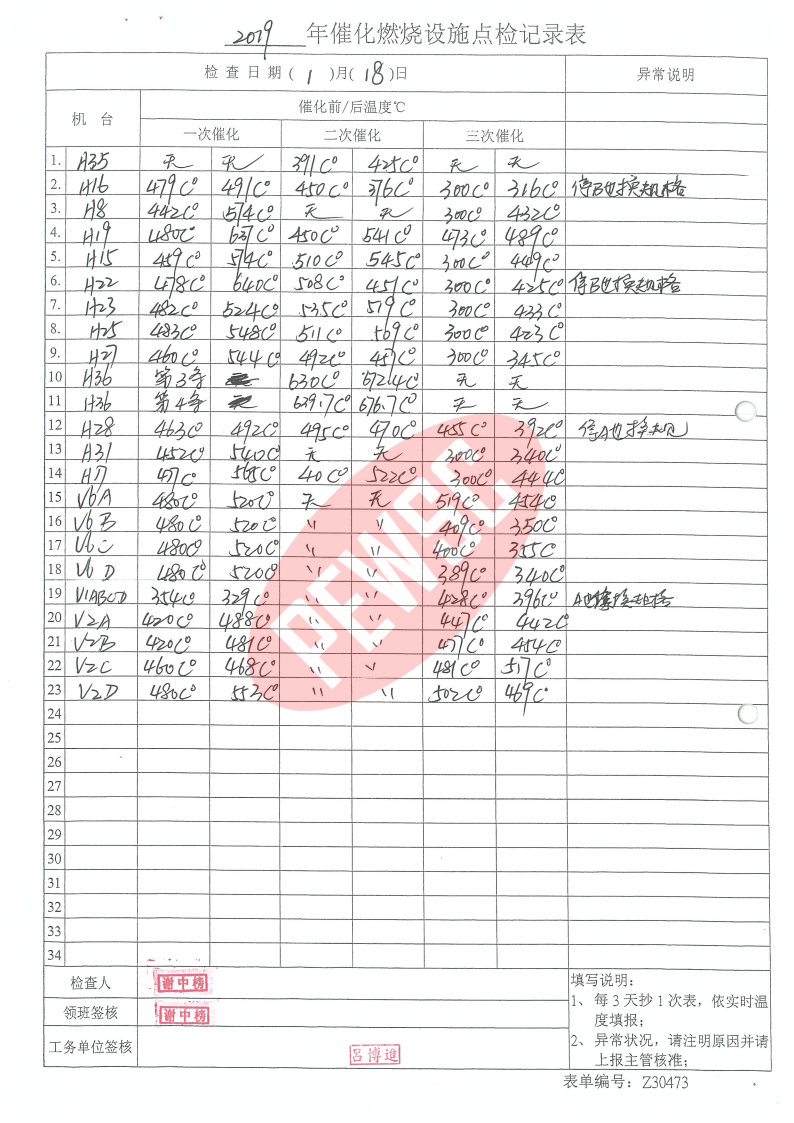 2019 年催化燃烧设施点检记录表
检查日期( 1 )月( 18 )日 异常说明
机 台 催化前/后温度℃
一次催化 二次催化 三次催化
1. H35 无 无 391C° 425C° 无 无
2. H16 479C° 491C° 450C° 376C° 300C° 316C° 停B池换规格
3. H8 442C° 574C° 无 无 300C° 432C°
4. H19 480C° 637C° 450C° 541C° 473C° 489C°
5. H15 459C° 574C° 510C° 545C° 300C° 449C°
6. H22 478C° 640C° 508C° 451C° 300C° 425C° 停B池换规格
7. H23 482C° 524C° 535C° 519C° 300C° 433C°
8. H25 483C° 548C° 511C° 509C° 300C° 423C°
9. H27 460C° 544C° 492C° 457C° 300C° 345C°
10 H36 第3条 无 630C° 672.4C° 无 无
11 H36 第4条 无 639.7C° 676.7C° 无 无
12 H28 463C° 492C° 495C° 470C° 455C° 392C° 停A池换规
13 H31 452C° 540C° 无 无 300C° 340C°
14 H7 471C° 565C° 40C° 522C° 300C° 444C°
15 V6A 480C° 520C° 无 无 519C° 454C°
16 V6B 480C° 520C° 〃 〃 409C° 350C°
17 V6C 480C° 520C° 〃 〃 400C° 355C°
18 V6D 480C° 520C° 〃 〃 389C° 340C°
19 V1ABCD 354C° 329C° 〃 〃 428C° 396C° A池换规格
20 V2A 420C° 488C° 〃 〃 447C° 442C°
21 V2B 420C° 481C° 〃 〃 471C° 454C°
22 V2C 460C° 468C° 〃 〃 481C° 517C°
23 V2D 480C° 553C° 〃 〃 502C° 469C°
24
25
26
27
28
29
30
31
32
33
34
PEWSC
检查人 谢中榜
领班签核 谢中榜
工务单位签核 吕博逸
填写说明：
1、每3天抄1次表，依实时温
度填报；
2、异常状况，请注明原因并请
上报主管核准；
表单编号：Z30473